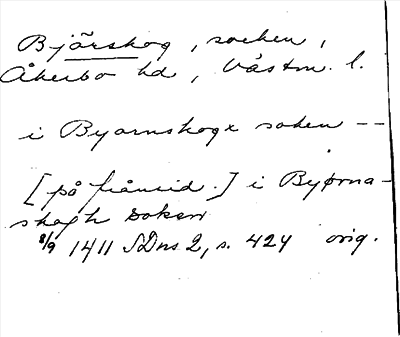 Björskog, socken,
Åkerbo hd, Västm. l.
i Byornskogx soken --
[på frånsid.] i Byørna-
skogh soken
8/9 1411 SDns 2, s. 424 orig.